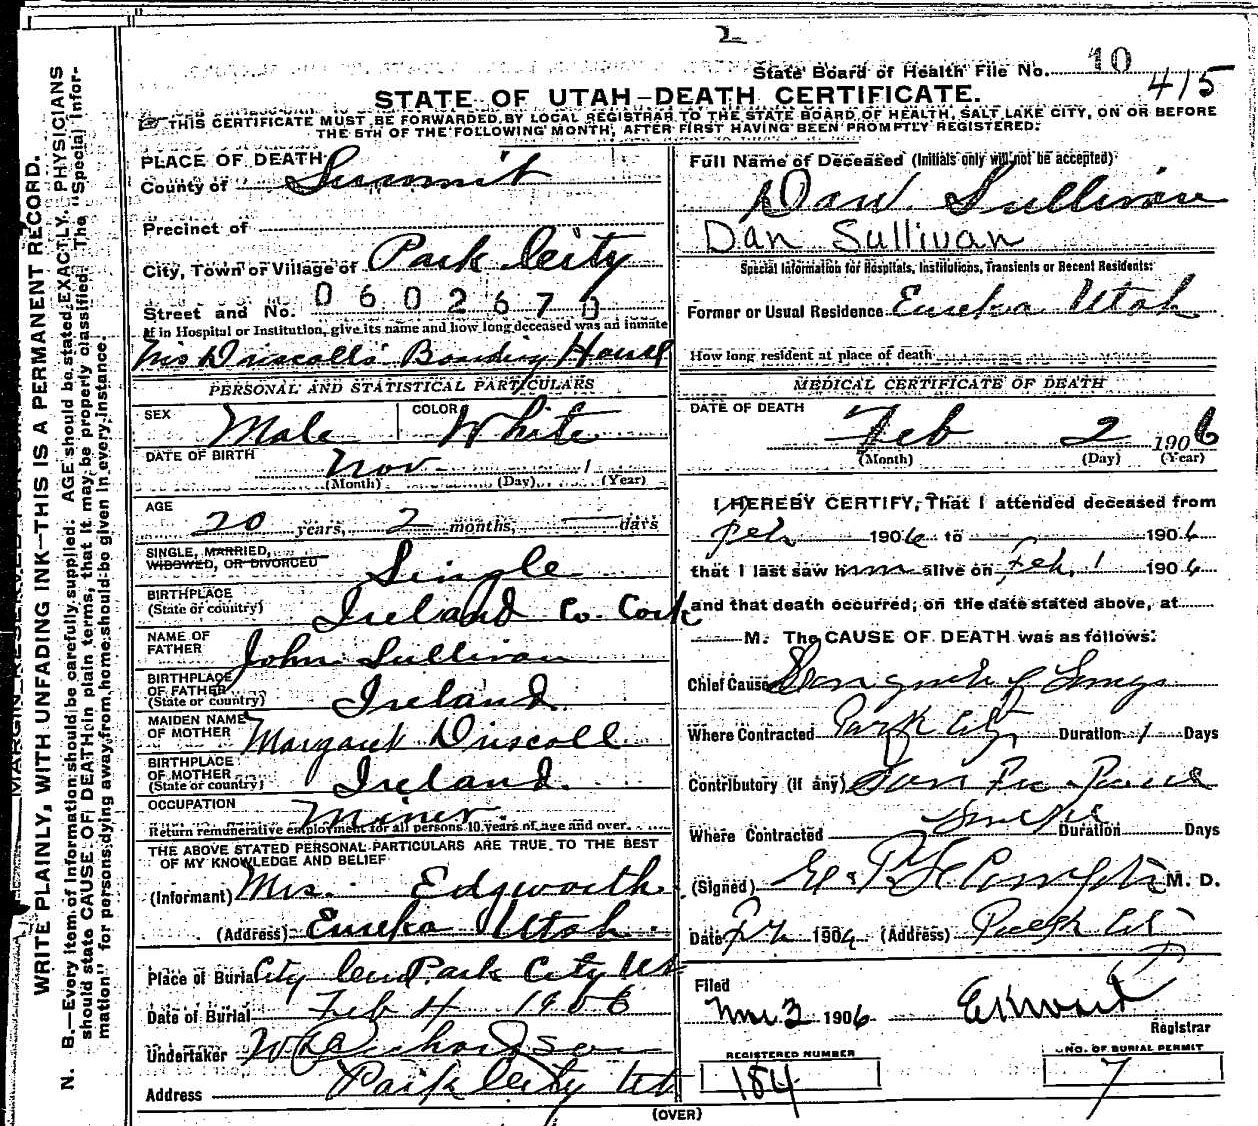 2
State Board of Health File No. 10
415
STATE OF UTAH—DEATH CERTIFICATE.
THIS CERTIFICATE MUST BE FORWARDED BY LOCAL REGISTRAR TO THE STATE BOARD OF HEALTH, SALT LAKE CITY, ON OR BEFORE
THE 5TH OF THE FOLLOWING MONTH, AFTER FIRST HAVING BEEN PROMPTLY REGISTERED.
MARGIN RESERVED FOR
WRITE PLAINLY, WITH UNFADING INK—THIS IS A PERMANENT RECORD.
N. B.—Every item of Information should be carefully supplied. AGE should be stated EXACTLY. PHYSICIANS
should state CAUSE OF DEATH in plain terms, that it may be properly classified. The "Special Infor-
mation" for persons dying away from home should be given in every instance.
PLACE OF DEATH
County of Summit
Precinct of
City, Town or Village of Park City
Street and No. 0602670
If in Hospital or Institution, give its name and how long deceased was an inmate
Mrs Driscolls' Boarding House
PERSONAL AND STATISTICAL PARTICULARS
SEX Male COLOR White
DATE OF BIRTH Nov
(Month) (Day) (Year)
AGE
20 years, 2 months, — days
SINGLE, MARRIED,
WIDOWED, OR DIVORCED Single
BIRTHPLACE
(State or country) Ireland Co. Cork
NAME OF
FATHER John Sullivan
BIRTHPLACE
OF FATHER
(State or country) Ireland
MAIDEN NAME
OF MOTHER Margaret Driscoll
BIRTHPLACE
OF MOTHER
(State or country) Ireland.
OCCUPATION Miner
Return remunerative employment for all persons 10 years of age and over.
THE ABOVE STATED PERSONAL PARTICULARS ARE TRUE TO THE BEST
OF MY KNOWLEDGE AND BELIEF
(Informant) Mrs. Edgworth
(Address) Eureka Utah.
Place of Burial City Cem Park City Ut
Date of Burial Feb 4 1906
Undertaker W Richardson
Address Park City Ut
Full Name of Deceased (Initials only will not be accepted)
Dan Sullivan
Dan Sullivan
Special Information for Hospitals, Institutions, Transients or Recent Residents:
Former or Usual Residence Eureka Utah
How long resident at place of death
MEDICAL CERTIFICATE OF DEATH
DATE OF DEATH
Feb 2 1906
(Month) (Day) (Year)
I HEREBY CERTIFY, That I attended deceased from
Feb 1906 to 1906
that I last saw him alive on Feb, 1 1906
and that death occurred, on the date stated above, at
M. The CAUSE OF DEATH was as follows:
Chief Cause of Lungs
Where Contracted Park City Duration 1 Days
Contributory (if any)
Where Contracted Duration Days
(Signed) M. D.
Date 1906 (Address) Park City
Filed
Mar 3 1906
Registrar
REGISTERED NUMBER
184
NO. OF BURIAL PERMIT
7
(OVER)